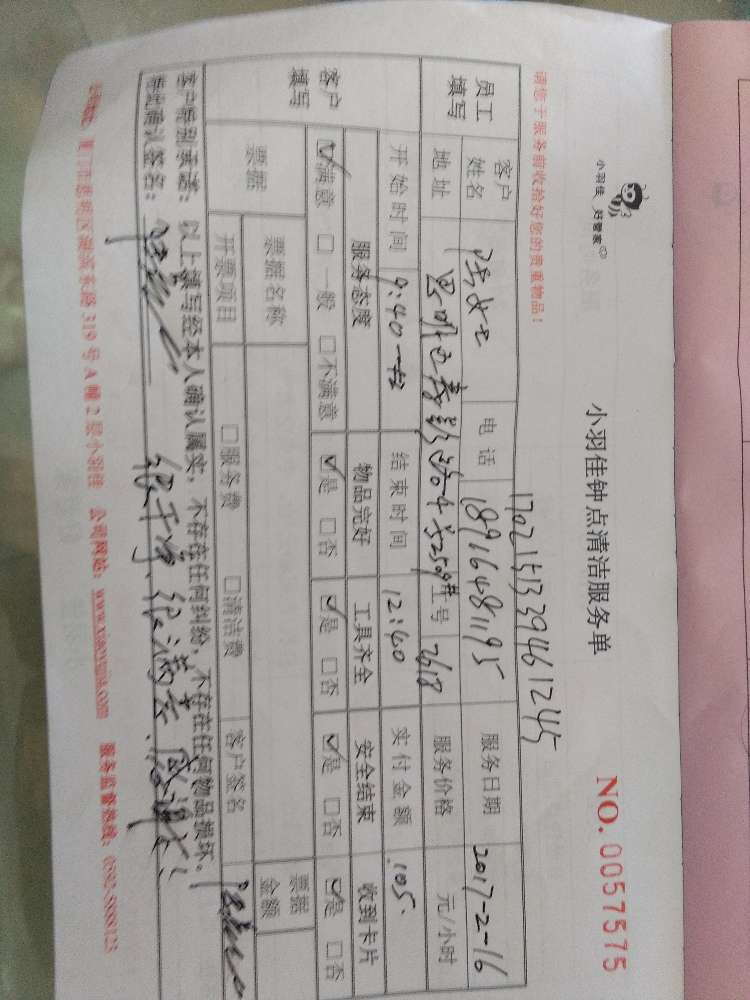 小羽佳 好管家
小羽佳钟点清洁服务单
NO. 0057575
请您于服务前收拾好您的贵重物品！
1702151339461245
员工填写 客户姓名 陈女士 电话 18916481195 服务日期 2017-2-16
地址 思明区 525号 工号 2618 服务价格 元/小时
开始时间 9:40 结束时间 12:40 实付金额 105.
客户填写 服务态度 物品完好 工具齐全 安全结束 收到卡片
☑满意 □一般 □不满意 ☑是 □否 ☑是 □否 ☑是 □否 ☑是 □否
票据 票据名称 票据金额
开票项目 □服务费 □清洁费 客户签名
客户特别承诺：以上填写经本人确认属实，不存在任何纠纷，不存在任何物品损坏。
特此确认签名： 很干净、很满意.感谢!
319号A幢2层小羽佳 公司网站：www.xiaoyujia.com 服务监督热线：